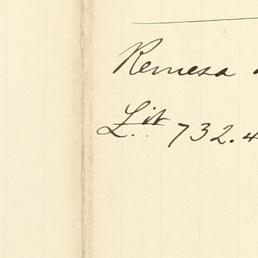 Remesa
Lit 732.4